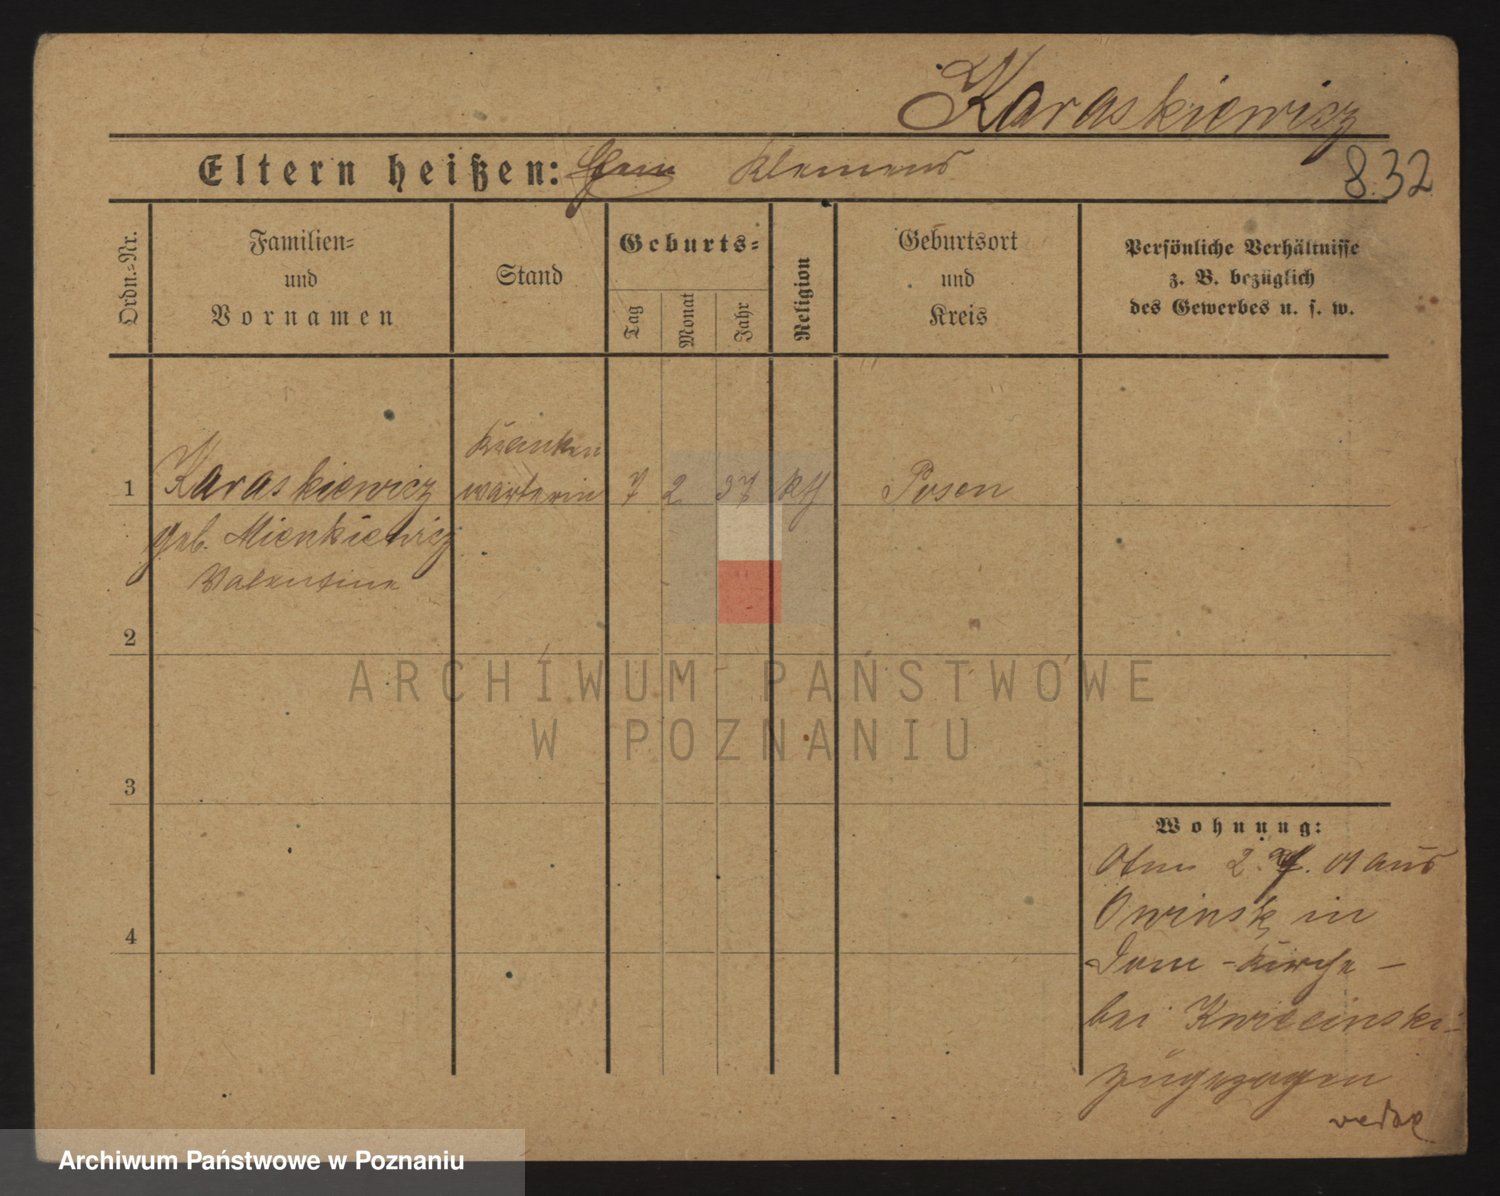 Karaskiewicz
Eltern heißen: Klemens
832
Ordn.-Nr.
Familien-
und
Vornamen
Stand
Geburts-
Tag
Monat
Jahr
Religion
Geburtsort
und
Kreis
Persönliche Verhältnisse
z. B. bezüglich
des Gewerbes u. s. w.
Kranken
1 Karaskiewicz wärterin 7 2 37 kth Posen
geb. Mienkiewicz
Valentine
2
3
4
Wohnung:
2. 01 aus
Owinsk in
Dom-Kirche-
bei Kwiecinski
zugezogen
ARCHIWUM PAŃSTWOWE
W POZNANIU
Archiwum Państwowe w Poznaniu